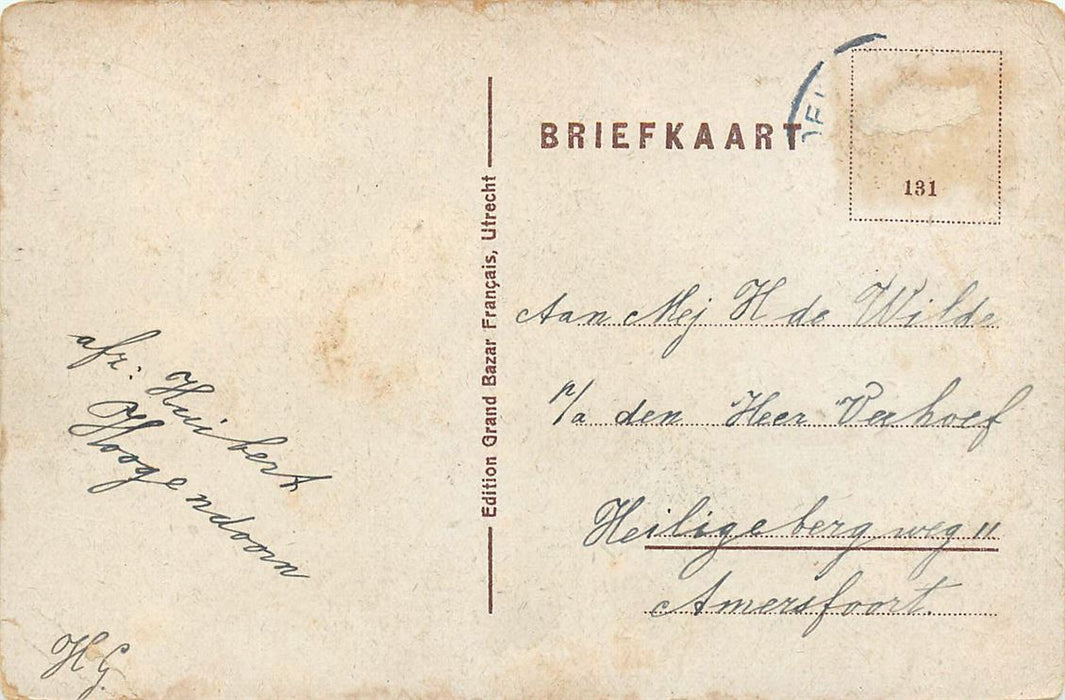 BRIEFKAART
131
Edition Grand Bazar Français, Utrecht
Aan Mej H de Wilde
p/a den Heer Verhoef
Heiligebergweg 11
Amersfoort.
afz: Huibert
Hoogendoorn
H G.